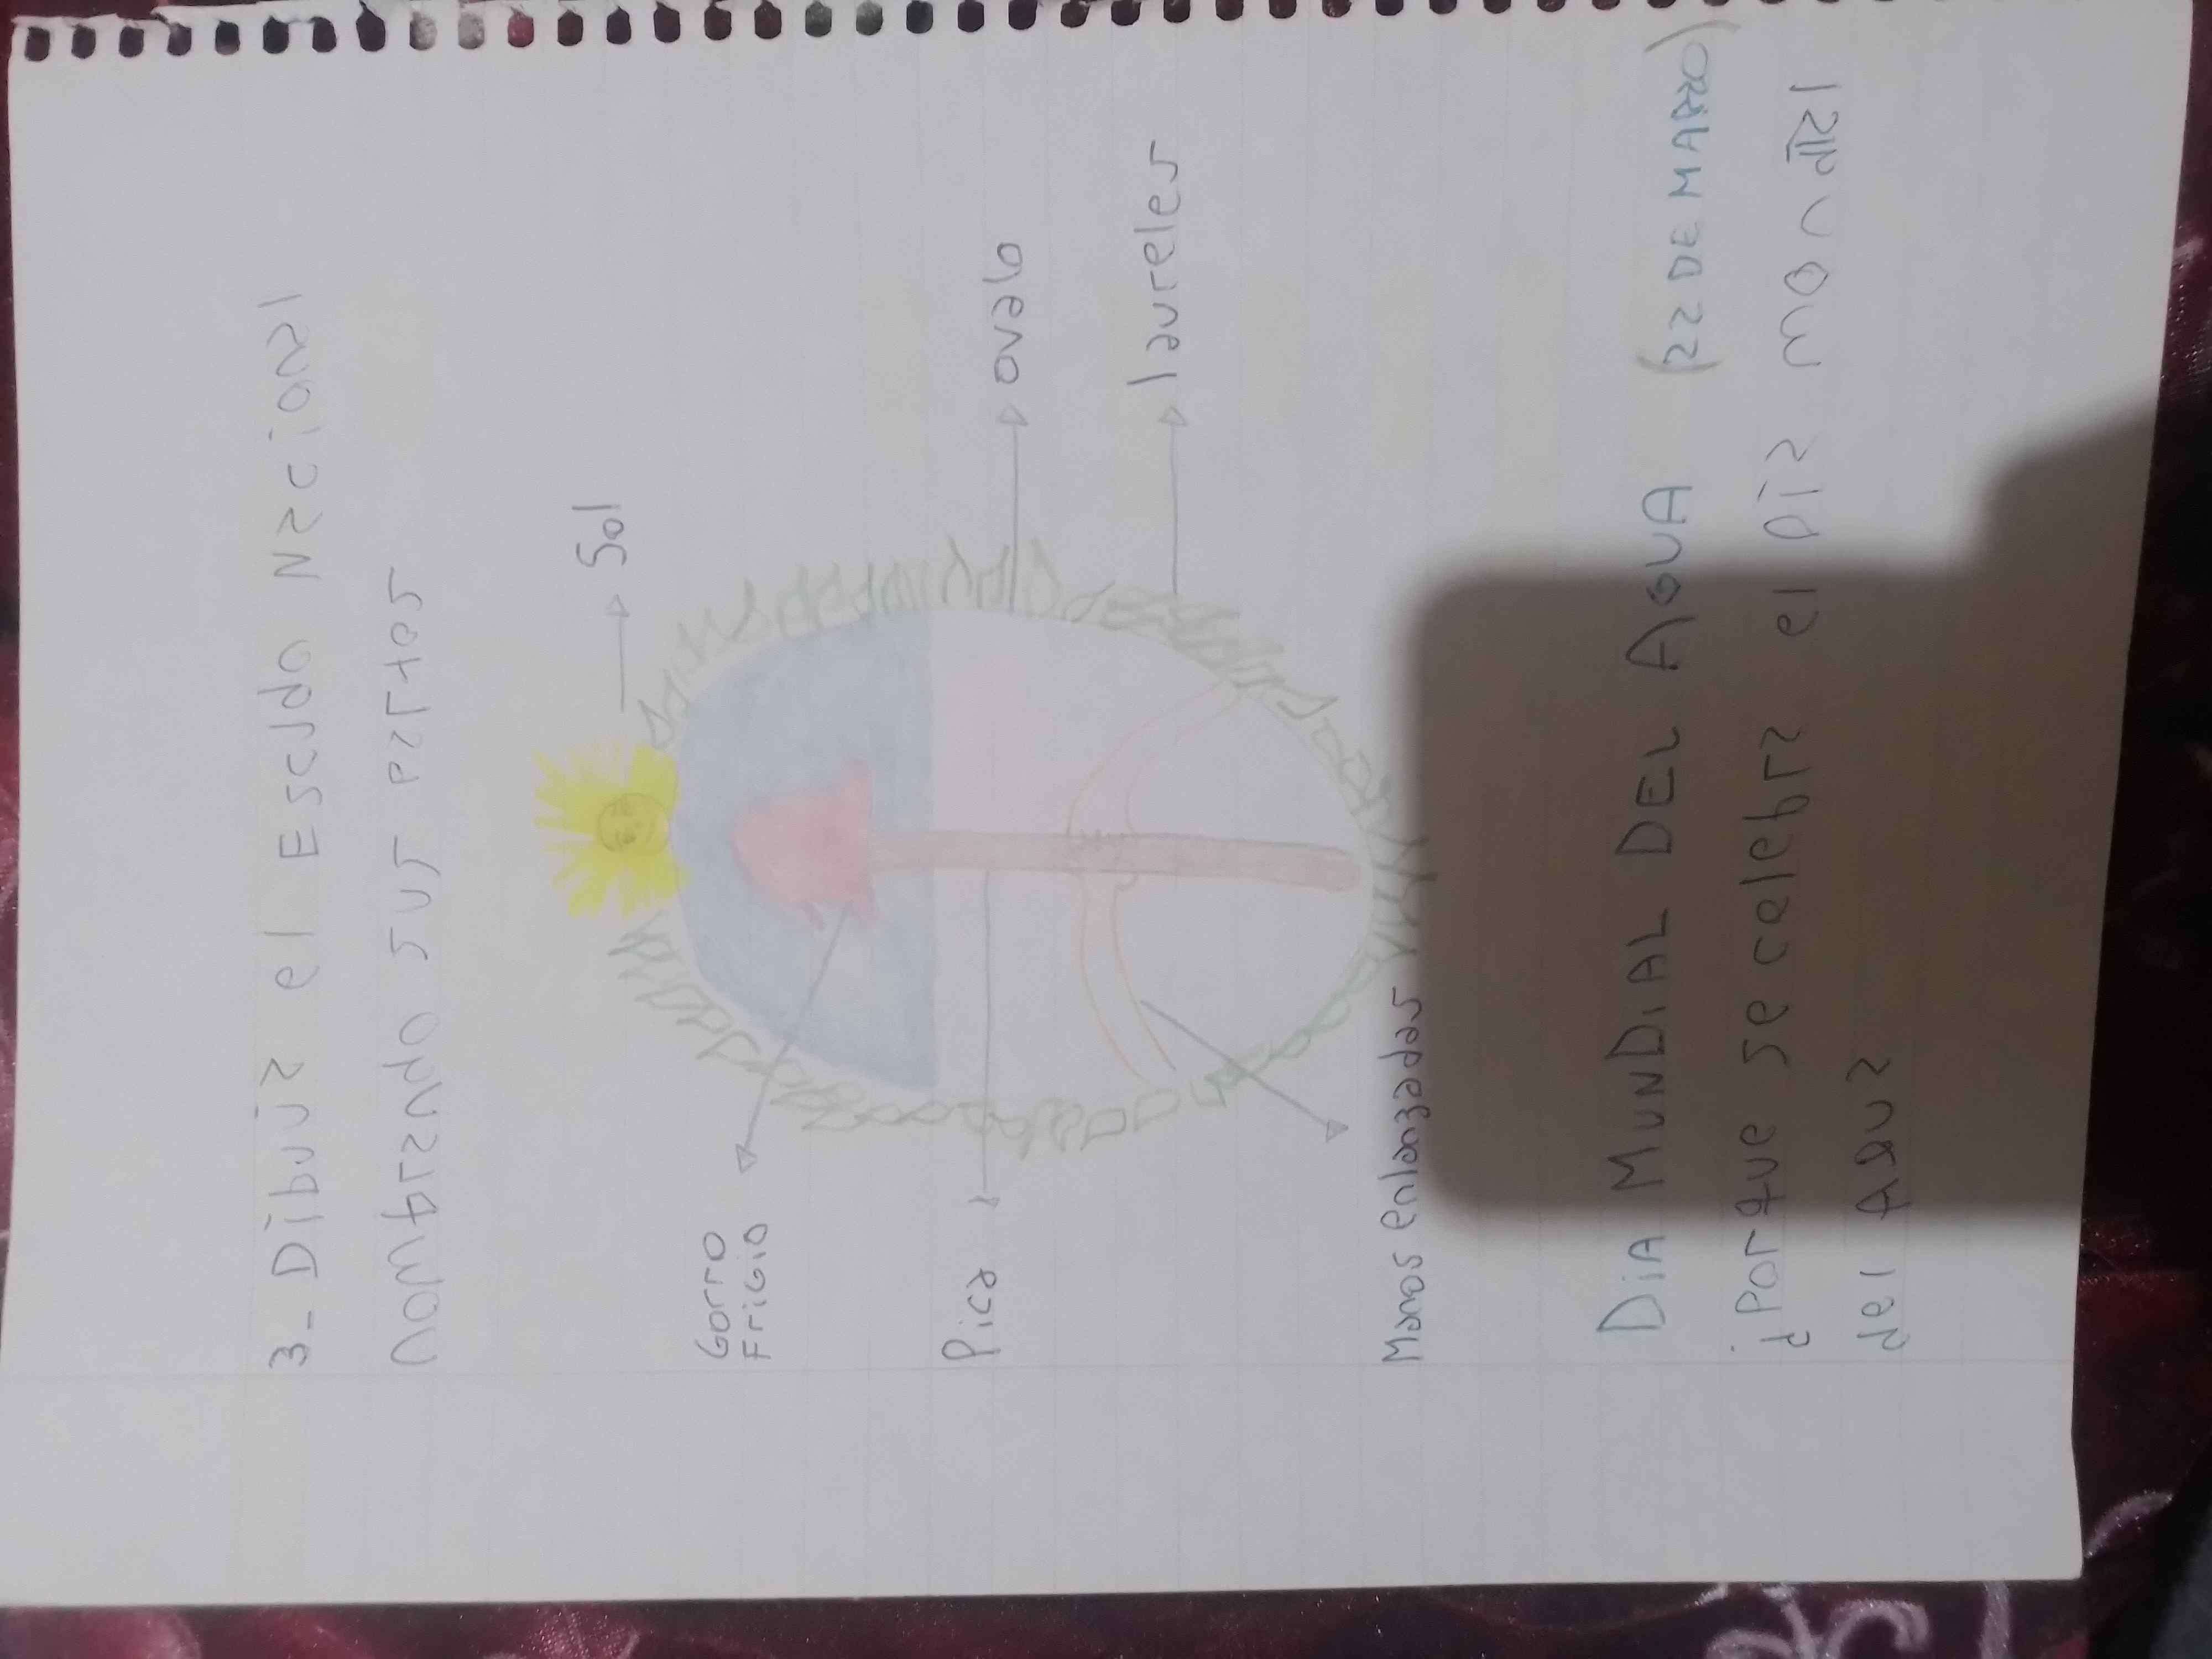 3_ Dibuja el Escudo Nacional
nombrando sus partes
Sol
Gorro
Frigio
Pica
ovalo
laureles
Manos enlanzadas
DIA MUNDIAL DEL AGUA (22 DE MARZO)
¿Porque se celebra el día mondial
del Agua